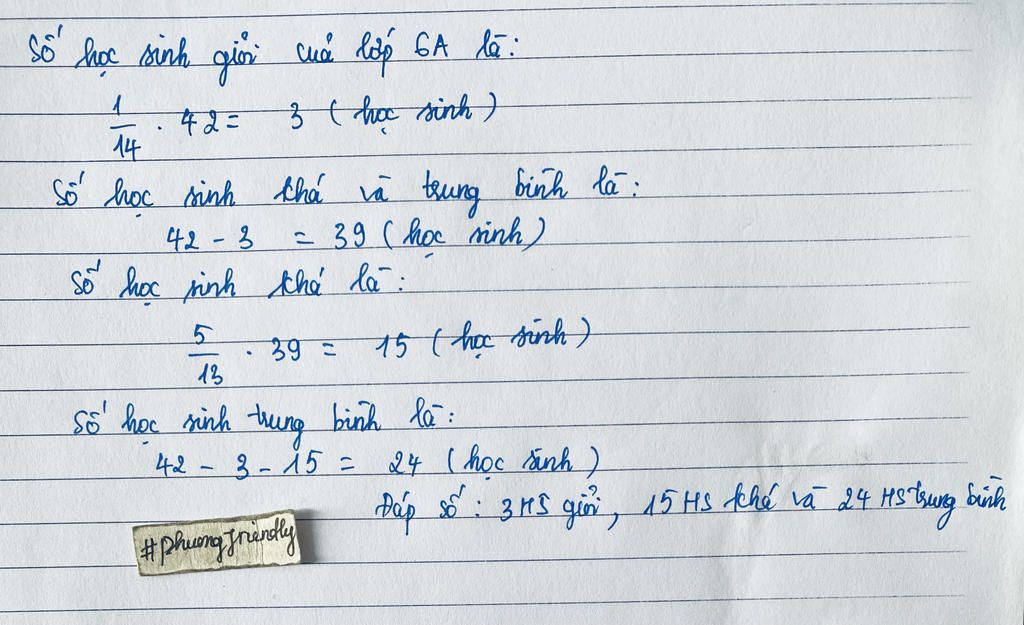 Số học sinh giỏi của lớp 6A là:
1/14 . 42 = 3 (học sinh)
Số học sinh khá và trung bình là:
42 - 3 = 39 (học sinh)
Số học sinh khá là:
5/13 . 39 = 15 (học sinh)
Số học sinh trung bình là:
42 - 3 - 15 = 24 (học sinh)
Đáp số: 3 HS giỏi, 15 HS khá và 24 HS trung bình
#phuongfriendly